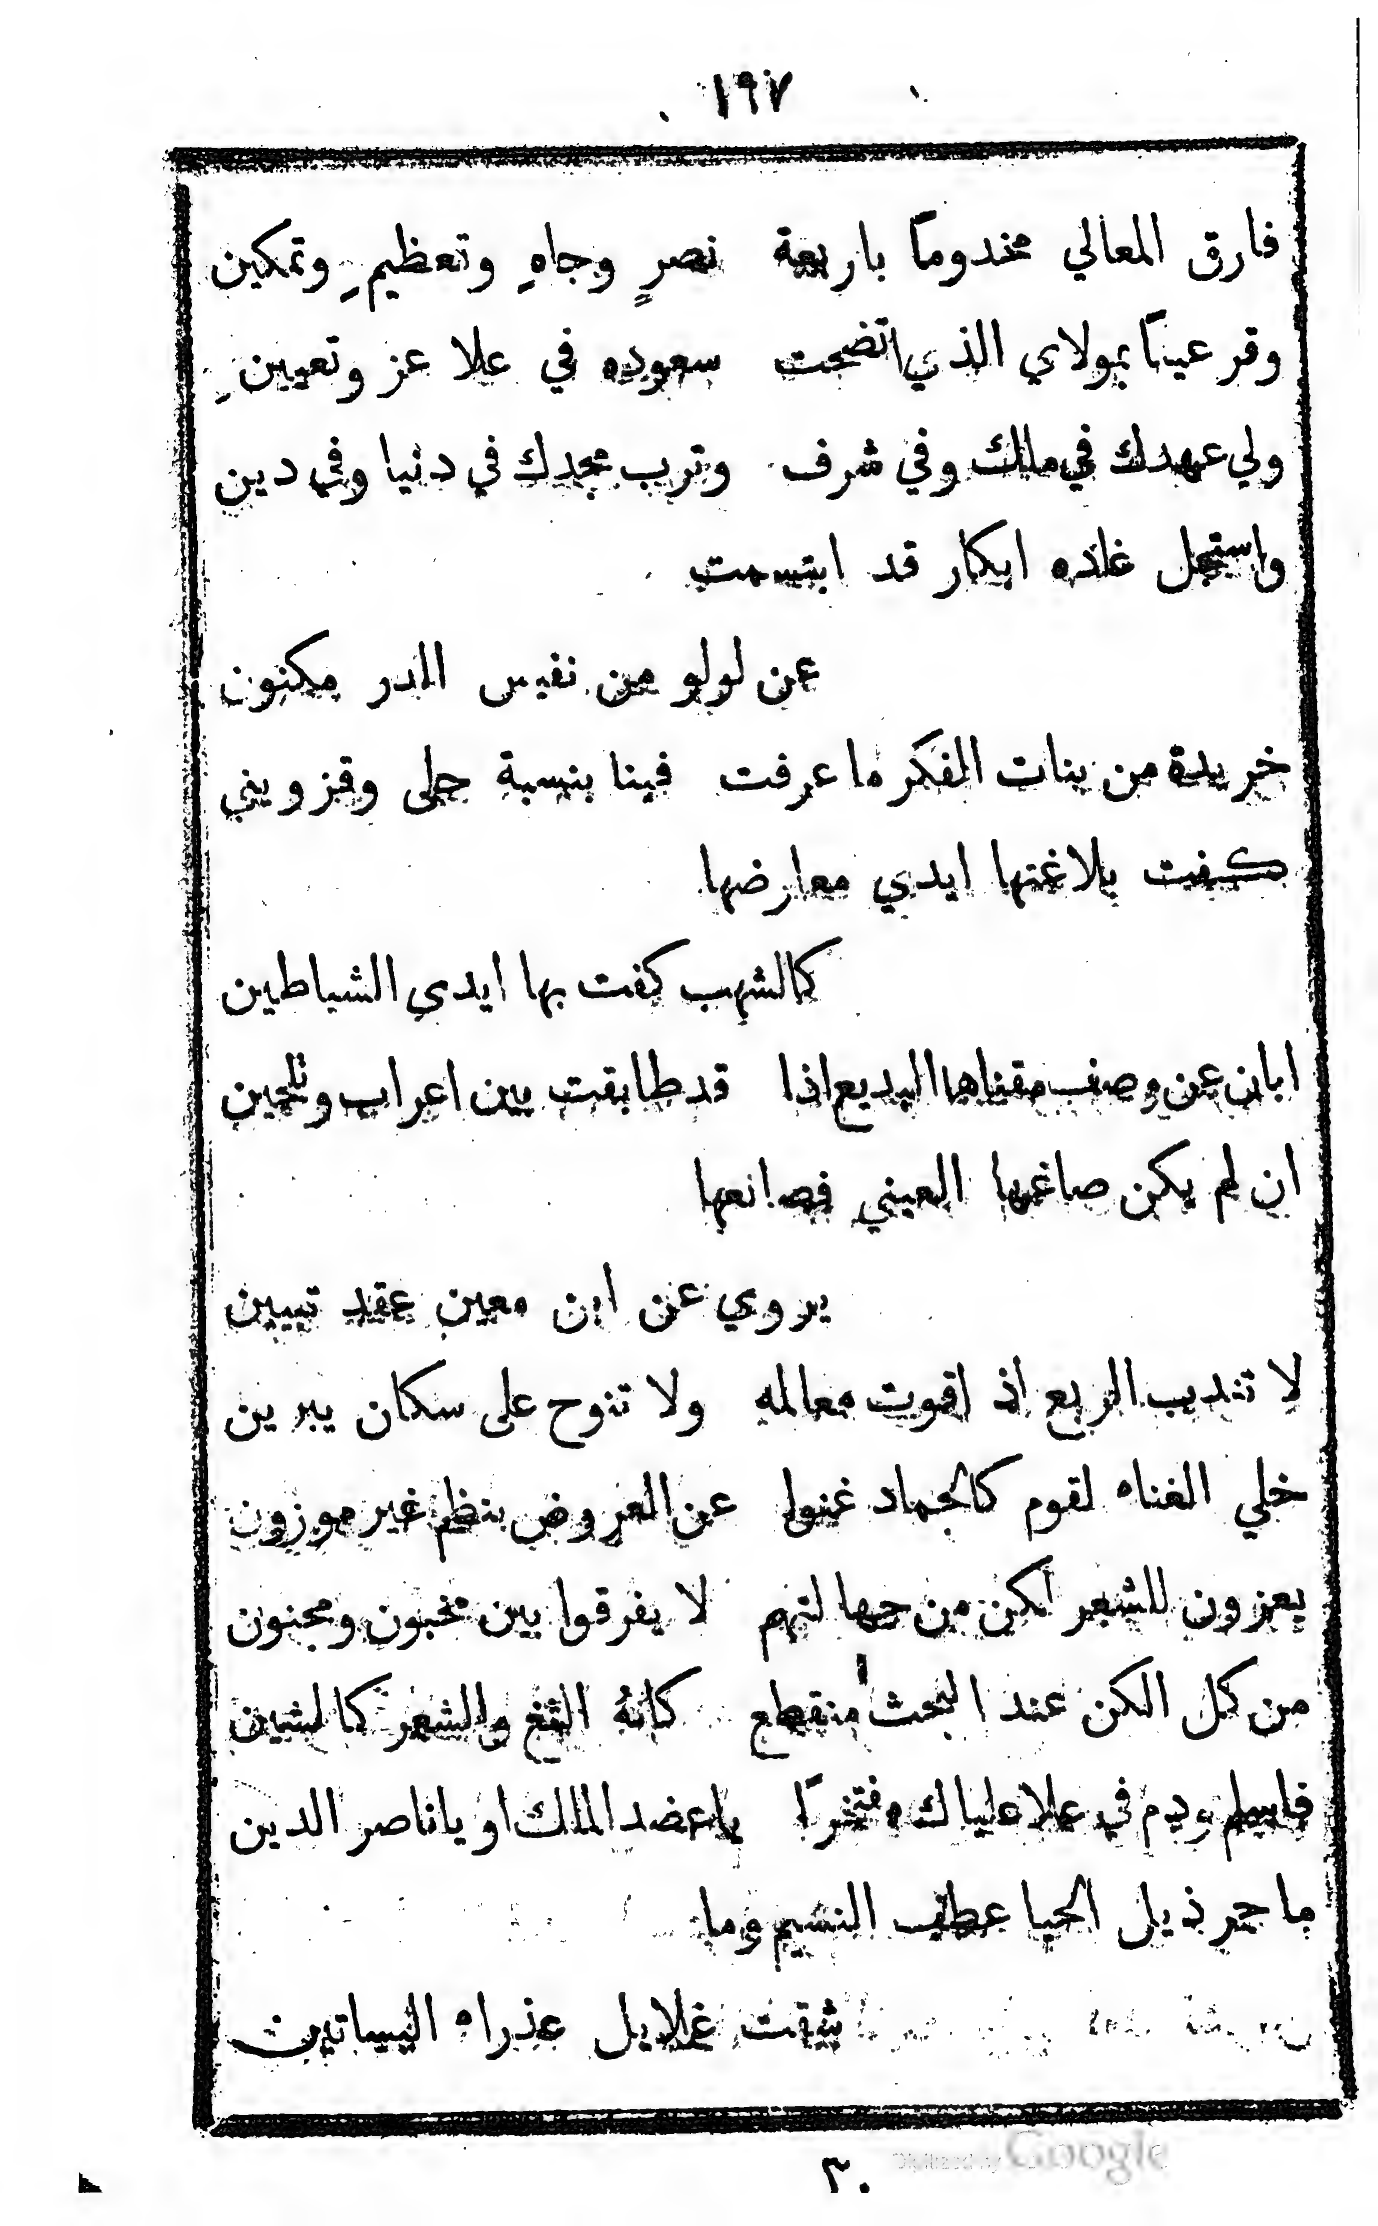 ١٩٧
فارق المعالي مخدوماً باربعة نصرٍ وجاهٍ وتعظيمٍ وتمكين
وقر عيناً بمولاي الذي اتضحت سعوده في علا عز وتعيينِ
ولي عهدك في ملك وفي شرف وترب مجدك في دنيا وفي دين
واستجل غاده ابكار قد ابتسمت
عن لولو من نفيس الدر مكنون
خريدة من بنات الفكر ما عرفت فينا بنسبة حلى وقزويني
كفت بلاغتها ايدي معارضها
كالشهب كفت بها ايدي الشياطين
ابان عن وصف مقناها البديع اذا قد طابقت بين اعراب وتلحين
ان لم يكن صاغها العيني فصانعها
يروي عن ابن معين عقد تبيين
لا تندب الربع اذ اقوت معالمه ولا تنوح على سكان يبرين
خلي الغناه لقوم كالجماد غنوا عن العروض بنظم غير موزون
يعزون للشعر لكن من جهالتهم لا يفرقوا بين مخبون ومجنون
من كل الكن عند البحث منقطع كانهُ الثغ والشعر كالشين
فاسلم ودم في علا علياك مفتخراً ياعضد الملك او ياناصر الدين
ما جر ذيل الحيا عطف النسيم وما
شقت غلايل عذراه البساتين
٣٠
Digitized by Google